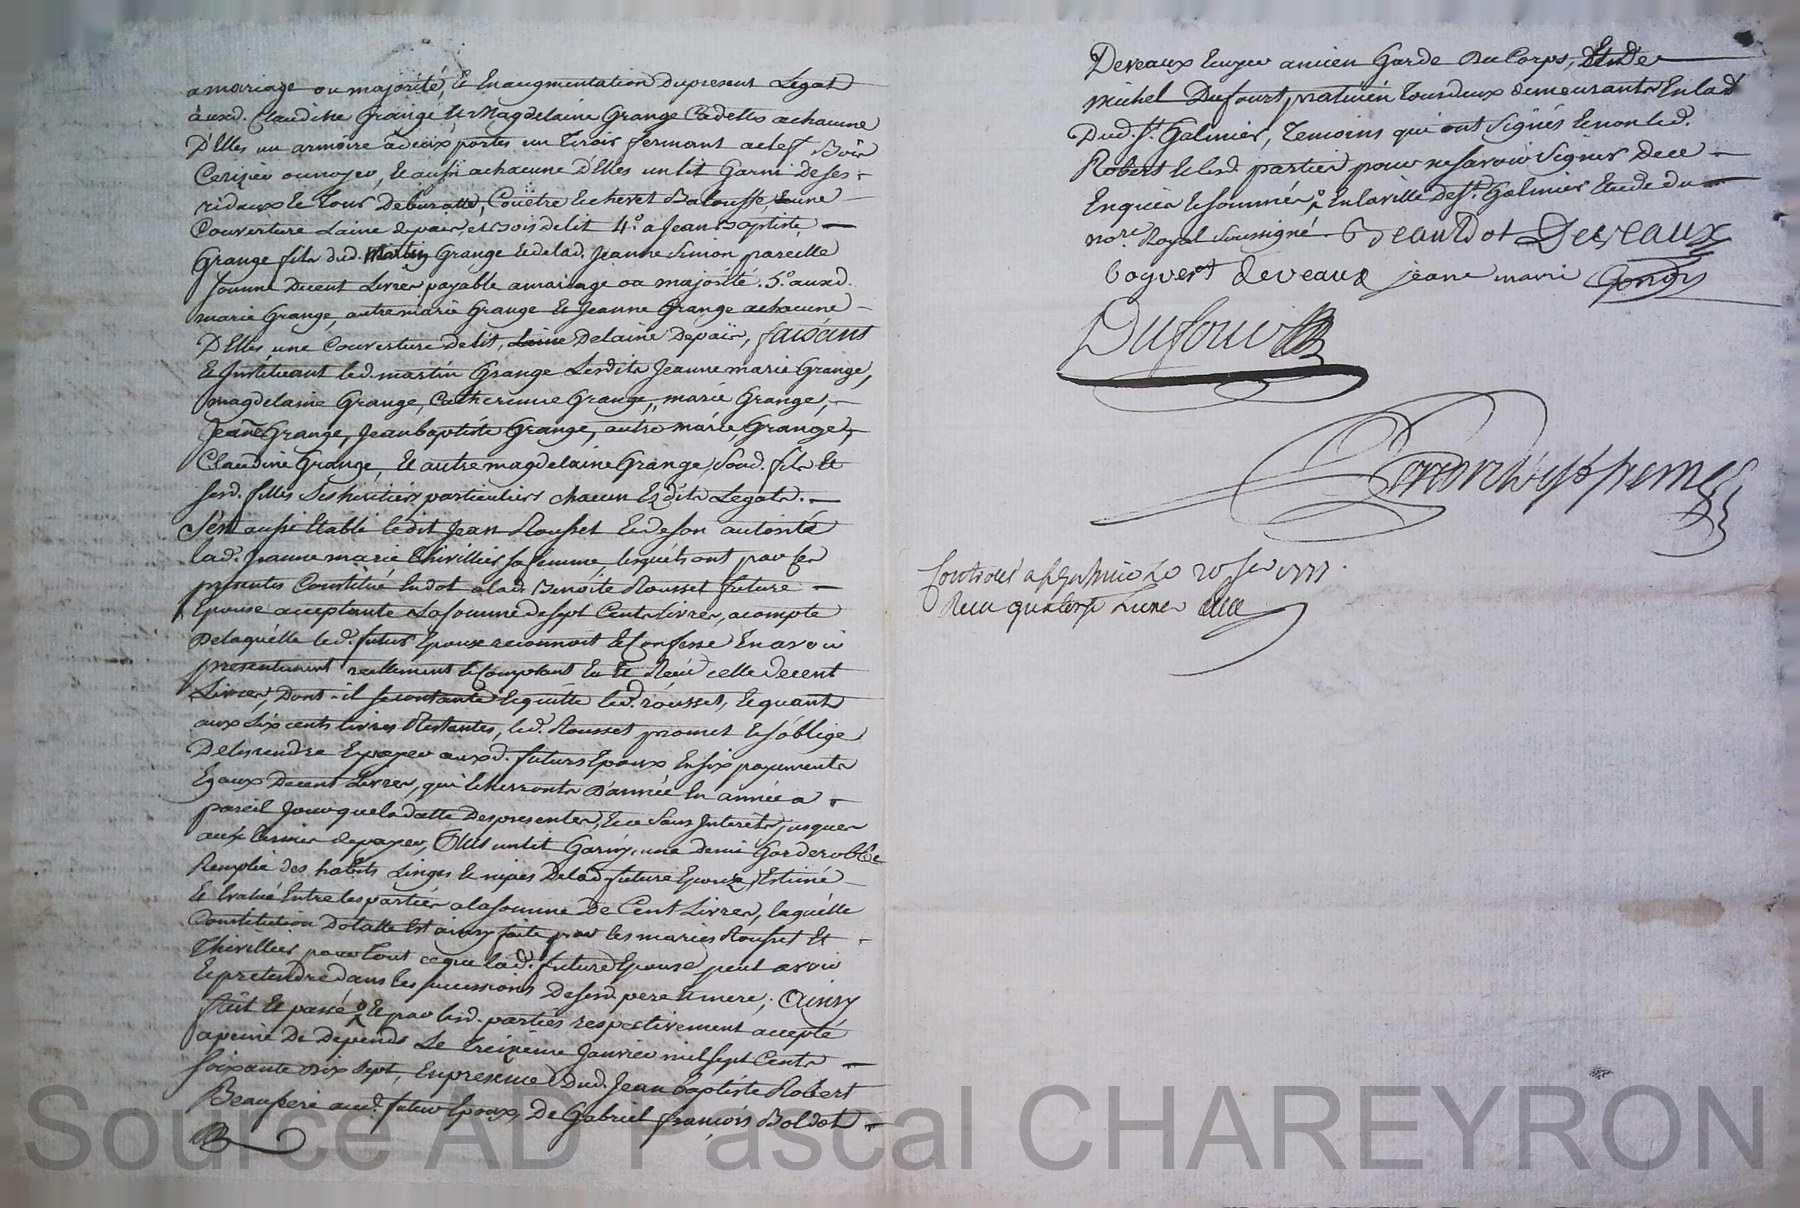 a mariage ou majorité, Et En augmentation du present Legat
auxd. Claudine Grange Et Magdelaine Grange Cadettes a chacune
D'Elles un armoire a deux portes un Tiroir fermant a clef Bois
Cerizier ou noyer, Et aussi a chacune d'Elles un lit Garni de ses
ridaux Et Tour de buratte, Couëtre Et chevet Balouffe, Et une
Couverture Laine de païs, et Bois de lit 4.° a Jean Baptiste
Grange fils dud. Martin Grange Et de lad. Jeanne Simon pareille
somme De cent Livres payable a mariage ou majorité. 5.° auxd.
marie Grange, autre marie Grange Et Jeanne Grange a chacune
D'Elles une Couverture de lit, De laine De païs, faisant
Et Jnstituant led. martin Grange Lesdits Jeanne marie Grange,
magdelaine Grange, Catherinne Grange, marie Grange,
Jeane Grange, Jean baptiste Grange, autre marie Grange,
Claudine Grange, Et autre magdelaine Grange, Sond. fils Et
sesd. filles Ses héritiers particuliers chacun Esdits Legats.
S'est aussi Etabli ledit Jean Rousset Et de son autorité
lad. Jeanne marie Thivillier sa femme, lesquels ont par ces
presentes Constitué En dot a lad. Benoite Rousset future
Epouse acceptante La somme de sept Cents Livres, a compte
De laquelle led. futur Epoux reconnoit Et Confesse En avoir
presentement reellement Et Comptant Eu Et Reçu celle de cent
Livres, Dont il se contante Et quitte led. rousset, Et quant
aux six cents livres Restantes, led. Rousset promet Et s'oblige
De les rendre Et payer auxd. futurs Epoux En six payements
Egaux De cent Livres, qui Echerronts D'année En année a
pareil Jour que la datte Des presentes, Et ce Sans Interets jusques
aux termes de payer, Plus un lit Garny, une demi Garderobbe
Remplie des habits Linges Et nipes De lad. future Epouze, Estimé
Et Evalué Entre les parties a la somme De Cent Livres, laquelle
Constitution Dotalle Est ainsy faite par les mariés Rousset Et
Thivillier pour tout ce que lad. future Epouse peut avoir
Et pretendre dans les successions De sesd. pere Et mere; Ainsy
fait Et passé Et par lesd. parties respectivement accepté
a peine De Depends Le treizieme Janvier mil sept Cents
soixante Dix Sept, En presence Dud. Jean baptiste Robert
Beaupere aud. futur Epoux, De Gabriel françois Boldot
Deveaux Ecuyer ancien Garde Du Corps, Et de
michel Dufour praticien Tous deux demeurants En lad.
Dud. St. Galmier, Temoins qui ont Signés Et non led.
Robert Et lesd. parties pour ne savoir Signer De ce
Enquis Et sommés, En la ville de St. Galmier Etude du
no.re Royal Soussigné. Deveaux
deveaux jeane marie
Dufour
Controlé a St Galmier Le 20 Jer 1777.
Recu quatorze Livres
Source AD Pascal CHAREYRON